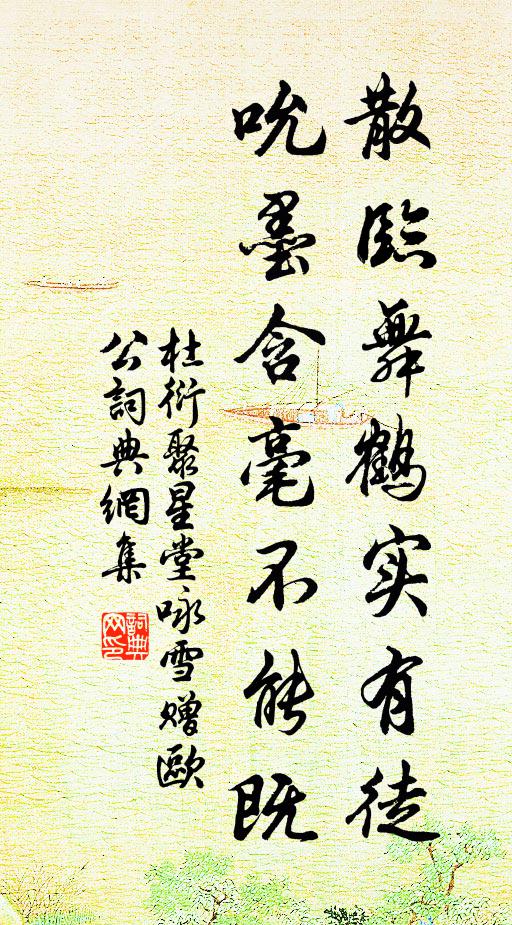 散臨舞鶴实有徒
吮墨含毫不能既
杜衍聚星堂咏雪赠歐
公詞典網集
詞典
网印